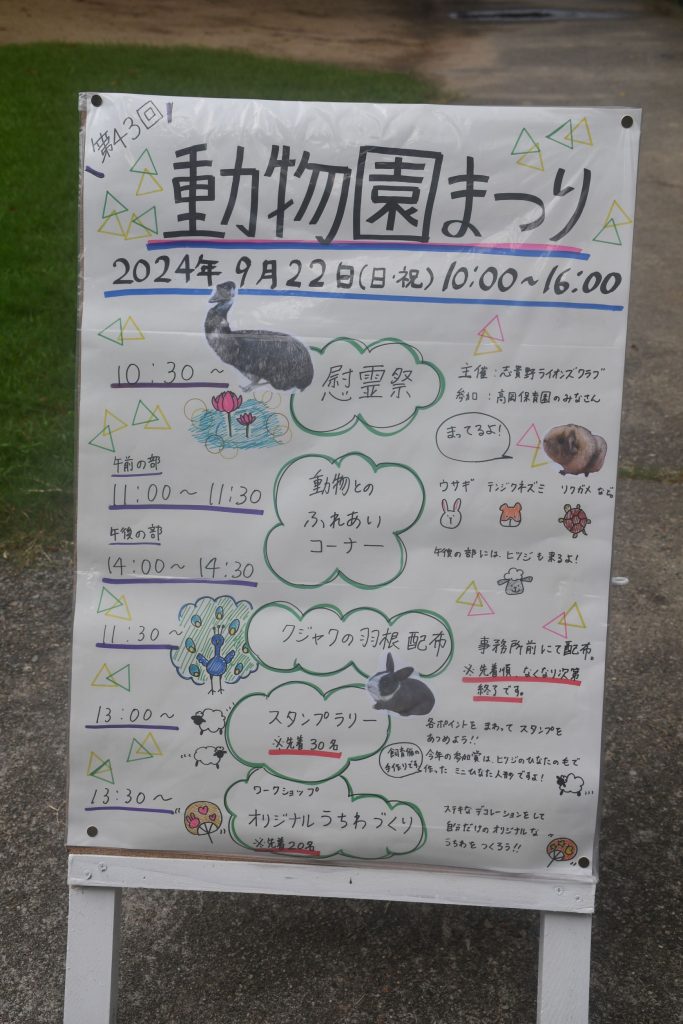 第43回
動物園まつり
2024年 9月22日(日・祝) 10:00〜16:00
10:30〜
慰霊祭
主催：志貴野ライオンズクラブ
参加：高岡保育園のみなさん
まってるよ!
午前の部
11:00〜11:30
午後の部
14:00〜14:30
動物との
ふれあい
コーナー
ウサギ テンジクネズミ リクガメ など
午後の部には、ヒツジも来るよ!
11:30〜
クジャクの羽根配布
事務所前にて配布。
※先着順、なくなり次第
終了です。
13:00〜
スタンプラリー
※先着30名
各ポイントを まわって スタンプを
あつめよう!!
飼育係の
手作りです
今年の参加賞は、ヒツジのひなたの毛で
作った ミニひなた人形ですよ!
13:30〜
ワークショップ
オリジナルうちわづくり
※先着20名
ステキな デコレーションをして
自分だけの オリジナルな
うちわを つくろう!!